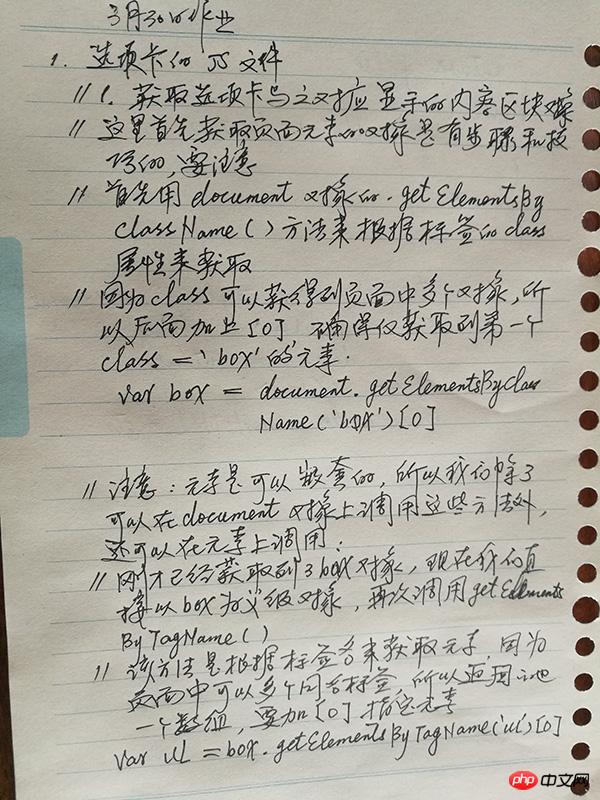 3月30日作业
1. 选项卡的 JS 文件
// 1. 获取选项卡与之对应显示的内容区块对象
// 这里首先获取页面元素的对象是有步骤和技
巧的,要注意
// 首先用 document 对象的.getElementsBy
ClassName()方法来根据标签的class
属性来获取
// 因为class可以获得到页面中多个对象,所
以后面加上[0] 确保仅获取到第一个
class = 'box'的元素.
var box = document.getElementsByClass
Name('box')[0]
// 注意:元素是可以嵌套的,所以我们除了
可以在document对象上调用这些方法外,
还可以在元素上调用;
// 刚才已经获取到了box对象,现在我们直
接以box为父级对象,再次调用getElements
ByTagName()
// 该方法是根据标签名来获取元素,因为
页面中可以多个同名标签,所以返回
一个数组,要加[0]指定元素
var ul = box.getElementsByTagName('ul')[0]
php 中文网